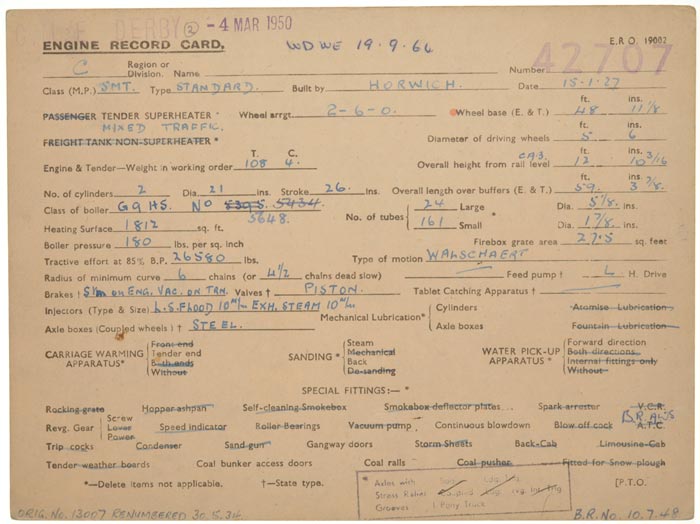 DERBY ② -4 MAR 1950
ENGINE RECORD CARD. WDWE 19.9.64 E.R.O. 19002
42707
C Region or Division. Name Number
Class (M.P.) 5MT. Type STANDARD. Built by HORWICH. Date 15.1.27
PASSENGER TENDER SUPERHEATER * Wheel arrgt. 2-6-0. Wheel base (E. & T.) ft. 48 ins. 11 1/8
MIXED TRAFFIC.
FREIGHT TANK NON-SUPERHEATER * Diameter of driving wheels ft. 5 ins. 6
Engine & Tender—Weight in working order T. 108 C. 4. Overall height from rail level ft. 12 ins. 10 3/16
No. of cylinders 2 Dia. 21 ins. Stroke 26 ins. Overall length over buffers (E. & T.) ft. 59. ins. 3 7/8
Class of boiler G9HS. No 5434 5648. No. of tubes 24 Large Dia. 5 1/8 ins.
Heating Surface 1812 sq. ft. 161 Small Dia. 1 7/8 ins.
Boiler pressure 180 lbs. per sq. inch Firebox grate area 27.5 sq. feet
Tractive effort at 85% B.P. 26580 lbs. Type of motion WALSCHAERT
Radius of minimum curve 6 chains (or 4 1/2 chains dead slow) Feed pump † L H. Drive
Brakes † S/m on ENG. VAC. ON TRN. Valves † PISTON. Tablet Catching Apparatus †
Injectors (Type & Size) L.S. FLOOD 10 m/m EXH. STEAM 10 m/m Mechanical Lubrication * Cylinders Atomise Lubrication
Axle boxes (Coupled wheels) † STEEL. Axle boxes Fountain Lubrication
CARRIAGE WARMING APPARATUS * Front end Tender end Both ends Without SANDING * Steam Mechanical Back De-sanding WATER PICK-UP APPARATUS * Forward direction Both directions Internal fittings only Without
SPECIAL FITTINGS:— *
Rocking grate Hopper ashpan Self-cleaning Smokebox Smokebox deflector plates Spark arrester V.C.R.
Revg. Gear Screw Lower Power Speed indicator Roller Bearings Vacuum pump Continuous blowdown Blow off cock A.T.C. B.R. AWS
Trip cocks Condenser Sand gun Gangway doors Storm Sheets Back-Cab Limousine-Cab
Tender weather boards Coal bunker access doors Coal rails Coal pusher Fitted for Snow plough
*—Delete items not applicable. †—State type. [P.T.O.
* Axles with Stress Relief Grooves Coupled 1 Pony Truck
ORIG. No. 13007 RENUMBERED 30.5.34. B.R. No. 10.7.48